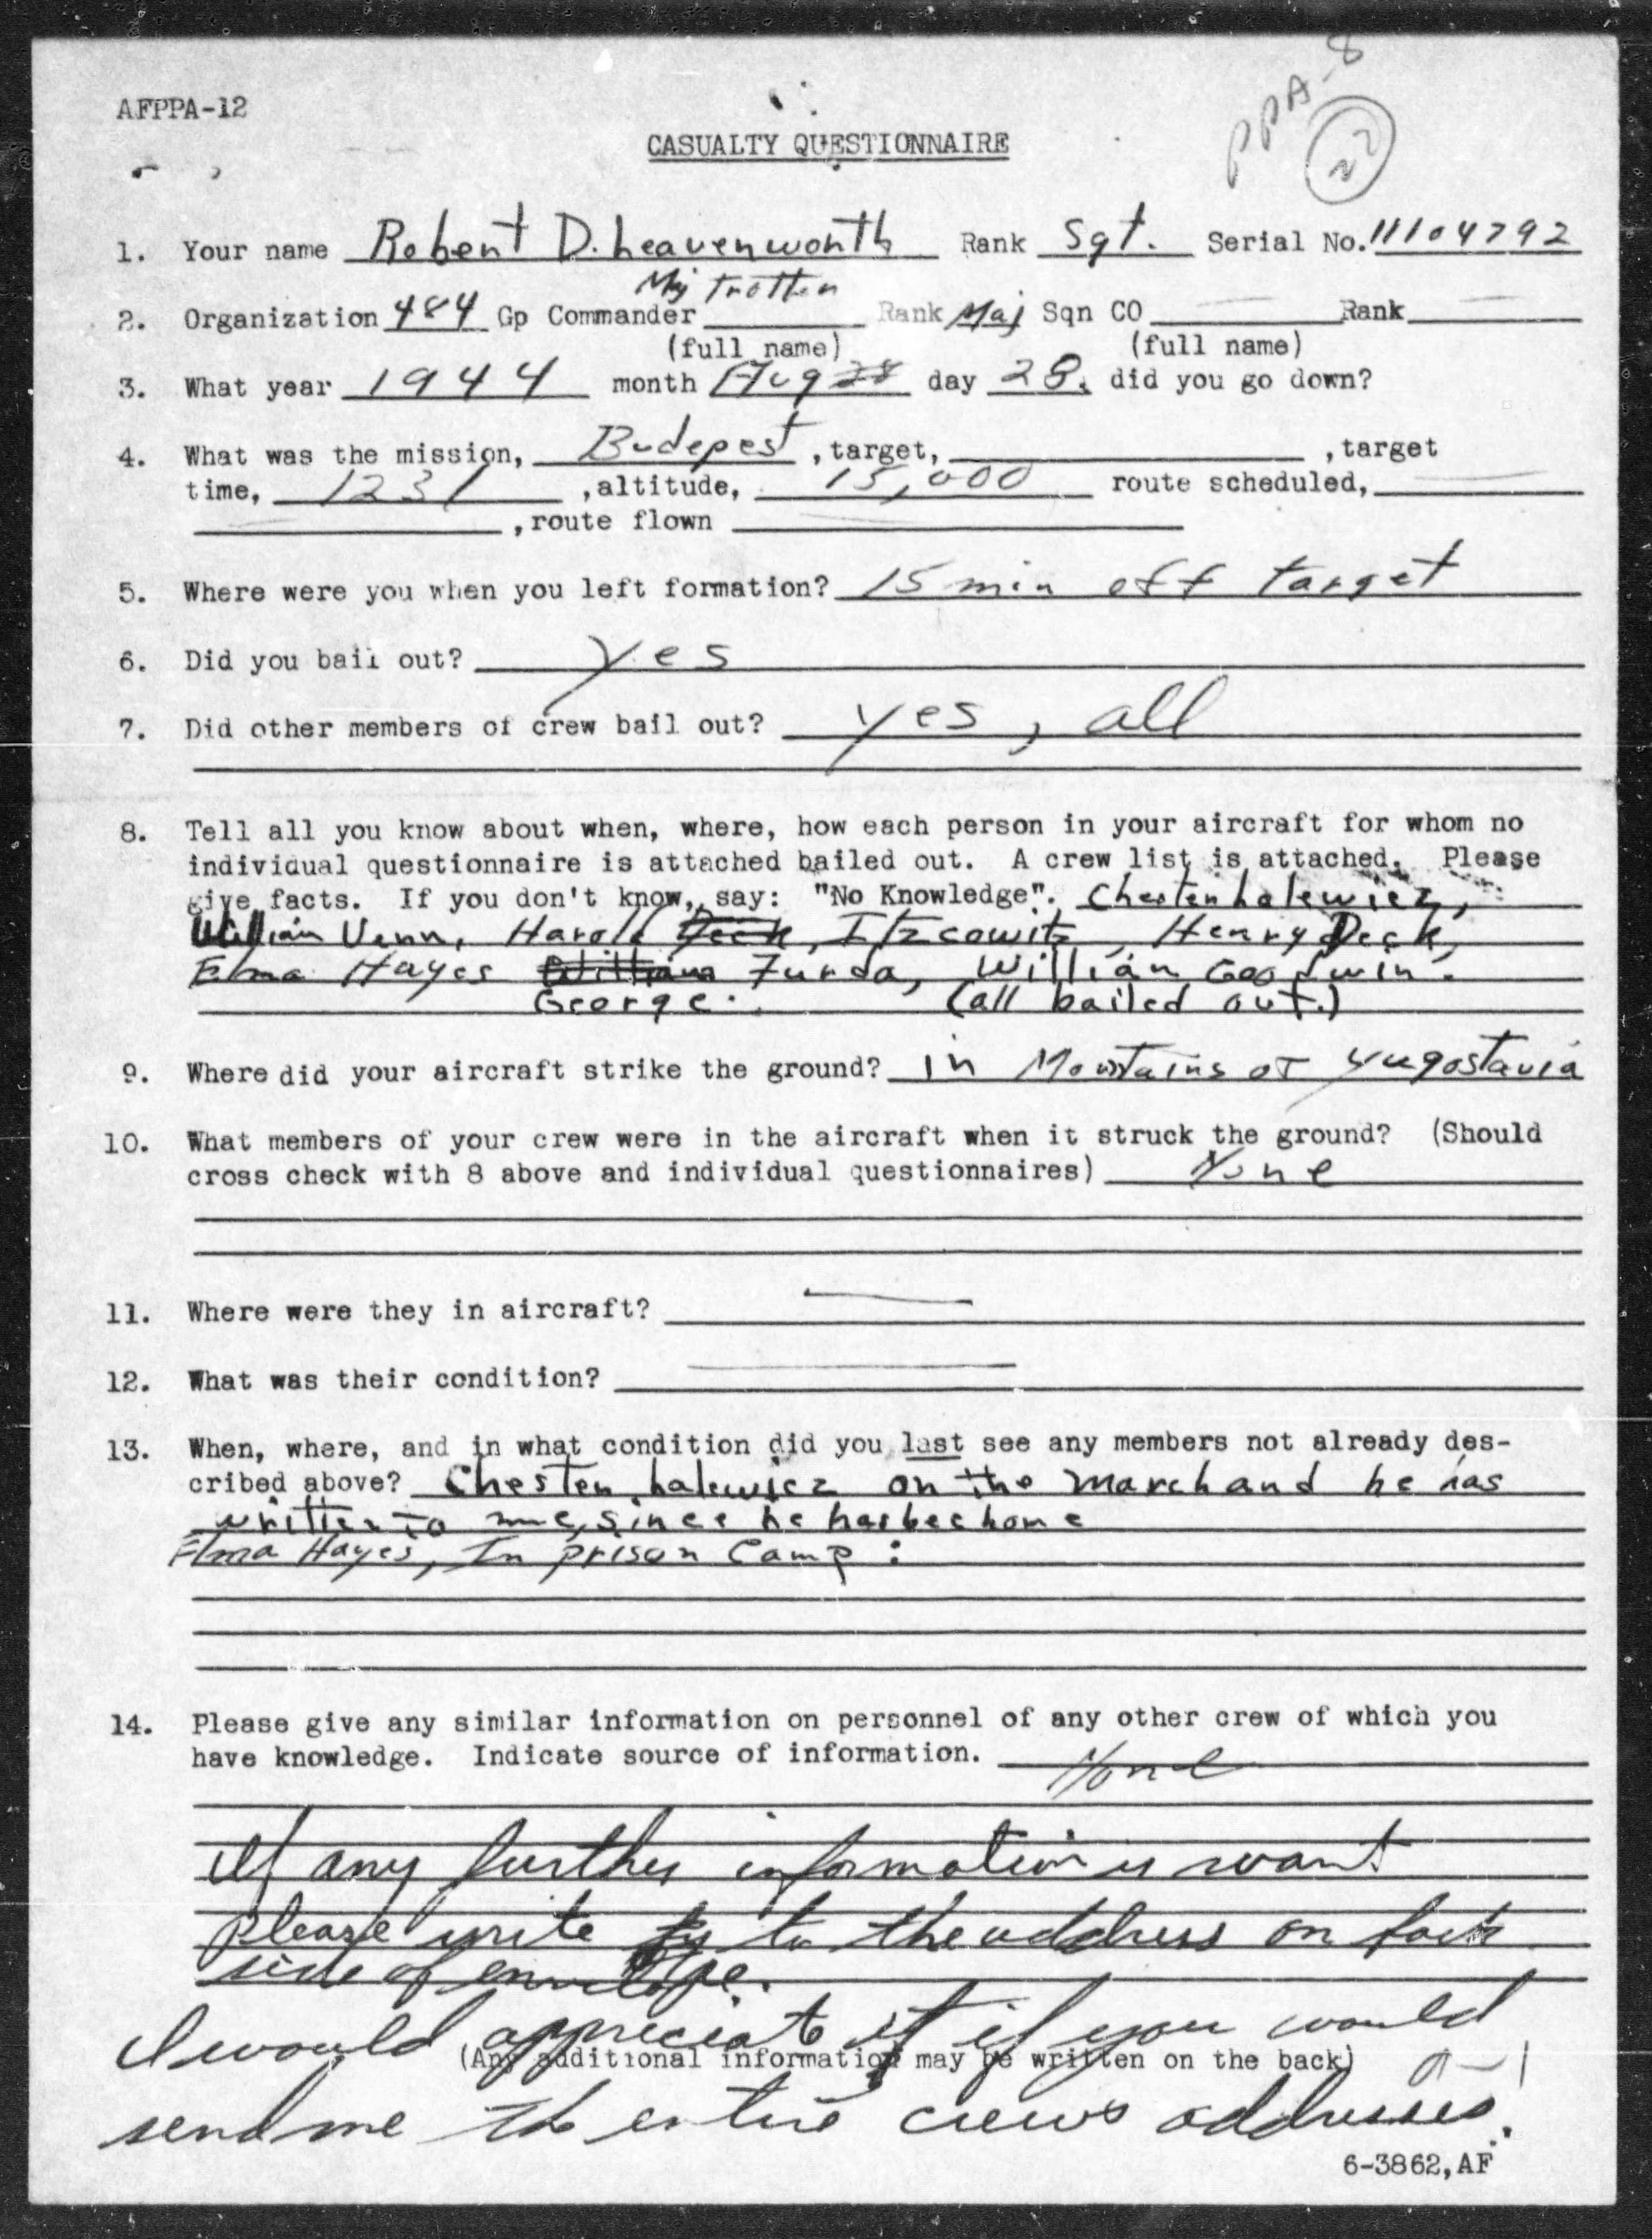 AFPPA-12
PPA-8
22
CASUALTY QUESTIONNAIRE
1. Your name Robert D. Leavenworth Rank Sgt. Serial No. 11104792
Mj Trotten
2. Organization 484 Gp Commander Rank Maj Sqn CO Rank
(full name) (full name)
3. What year 1944 month Aug 28 day 28. did you go down?
4. What was the mission, Budepest, target, , target
time, 1231, altitude, 15,000 route scheduled,
, route flown
5. Where were you when you left formation? 15 min off target
6. Did you bail out? Yes
7. Did other members of crew bail out? yes, all
8. Tell all you know about when, where, how each person in your aircraft for whom no
individual questionnaire is attached bailed out. A crew list is attached. Please
give facts. If you don't know, say: "No Knowledge". Chester Lalewicz,
William Venn, Harold Deck, Itzcowitz, Henry Deck,
Elma Hayes William Funda, William Goodwin.
George. (all bailed out.)
9. Where did your aircraft strike the ground? in Mountains of Yugoslavia
10. What members of your crew were in the aircraft when it struck the ground? (Should
cross check with 8 above and individual questionnaires) None
11. Where were they in aircraft?
12. What was their condition?
13. When, where, and in what condition did you last see any members not already des-
cribed above? Chester Lalewicz on the march and he has
written to me, since he has bee home
Elma Hayes, In prison Camp:
14. Please give any similar information on personnel of any other crew of which you
have knowledge. Indicate source of information. None
If any further information is want
please write to the address on back
side of envelope.
I would appreciate it if you would
(Any additional information may be written on the back)
send me the entire crews addresses.
6-3862,AF